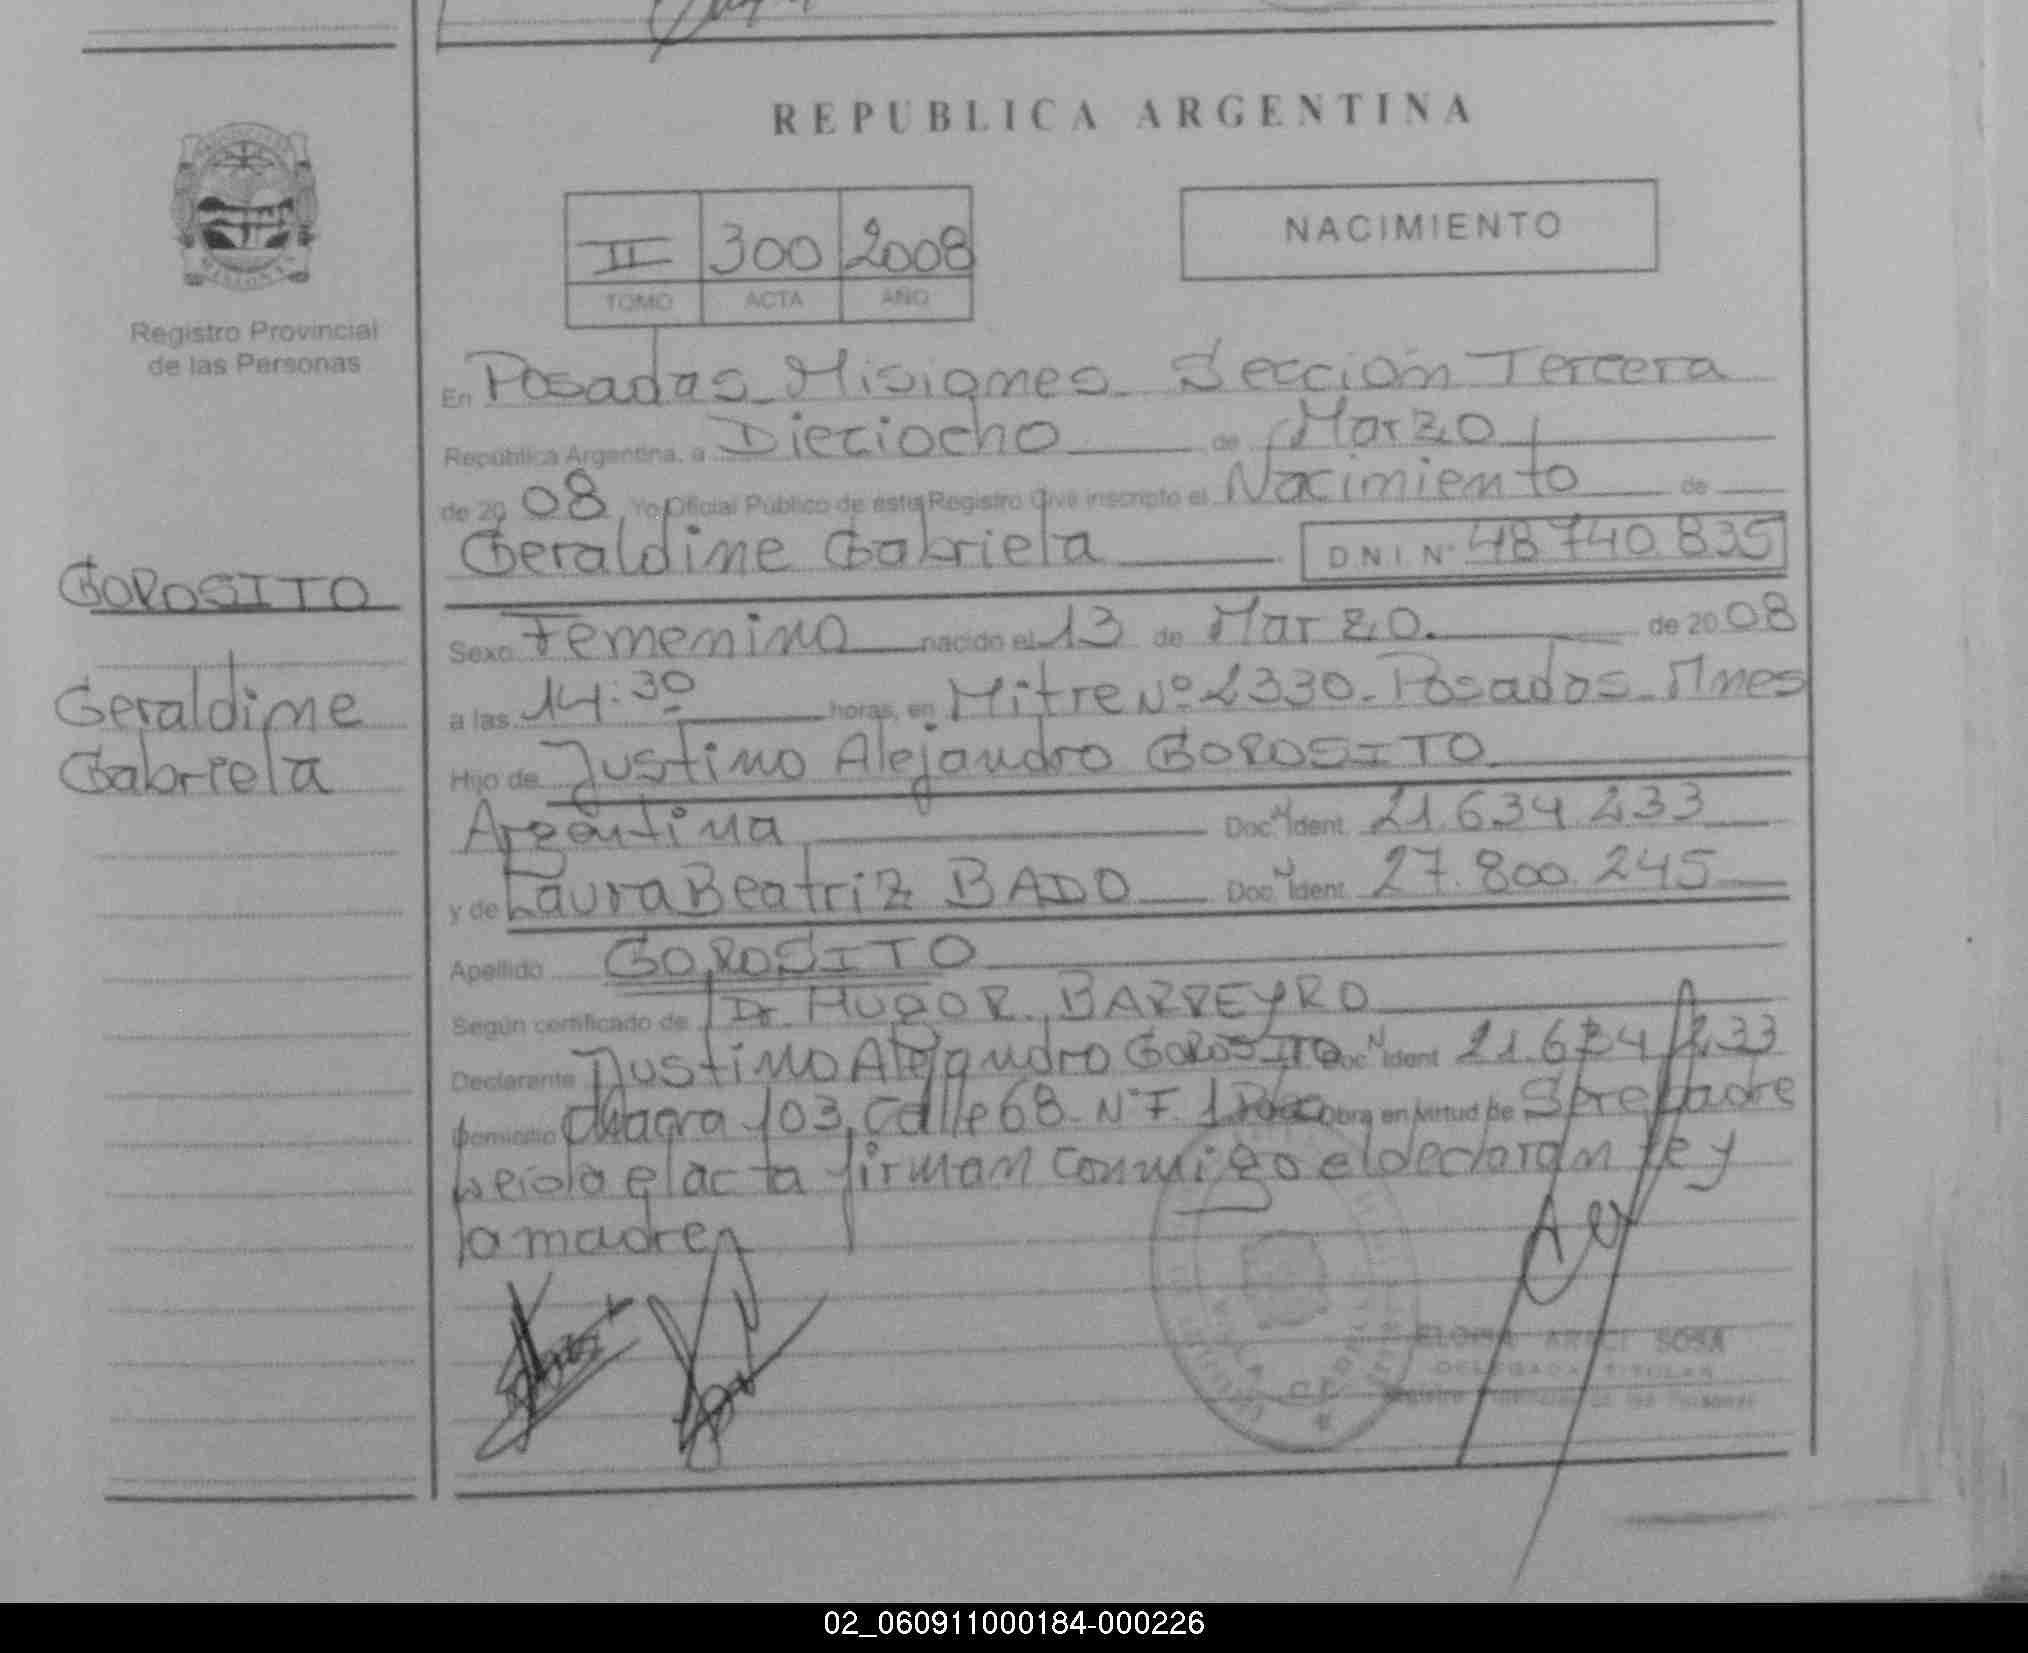 REPUBLICA ARGENTINA
NACIMIENTO
II 300 2008
TOMO ACTA AÑO
Registro Provincial
de las Personas
En Posadas Misiones Sección Tercera
República Argentina, a Dieciocho de Marzo
de 20 08 Yo Oficial Público de este Registro Civil inscripto el Nacimiento de
Geraldine Gabriela D N I N° 48 740 835
GOROSITO
Geraldine
Gabriela
Sexo Femenino nacido el 13 de Marzo. de 20 08
a las 14:30 horas, en Mitre Nº 2330. Posadas Mnes
Hijo de Justino Alejandro GOROSITO
Argentina Doc. Ident. 21.634.233
y de Laura Beatriz BADO Doc. Ident. 27.800.245
Apellido GOROSITO
Según certificado de Dr. HUGO R. BARREYRO
Declarante Justino Alejandro GOROSITO Doc. Ident 21.634.233
Domicilio Chacra 103, Calle 68- Nº F. 1 Obra en virtud de Ser el padre
Leída el acta firman conmigo el declarante y
la madre
SOSA
DELEGADA TITULAR
Registro Provincial de las Personas
02_060911000184-000226